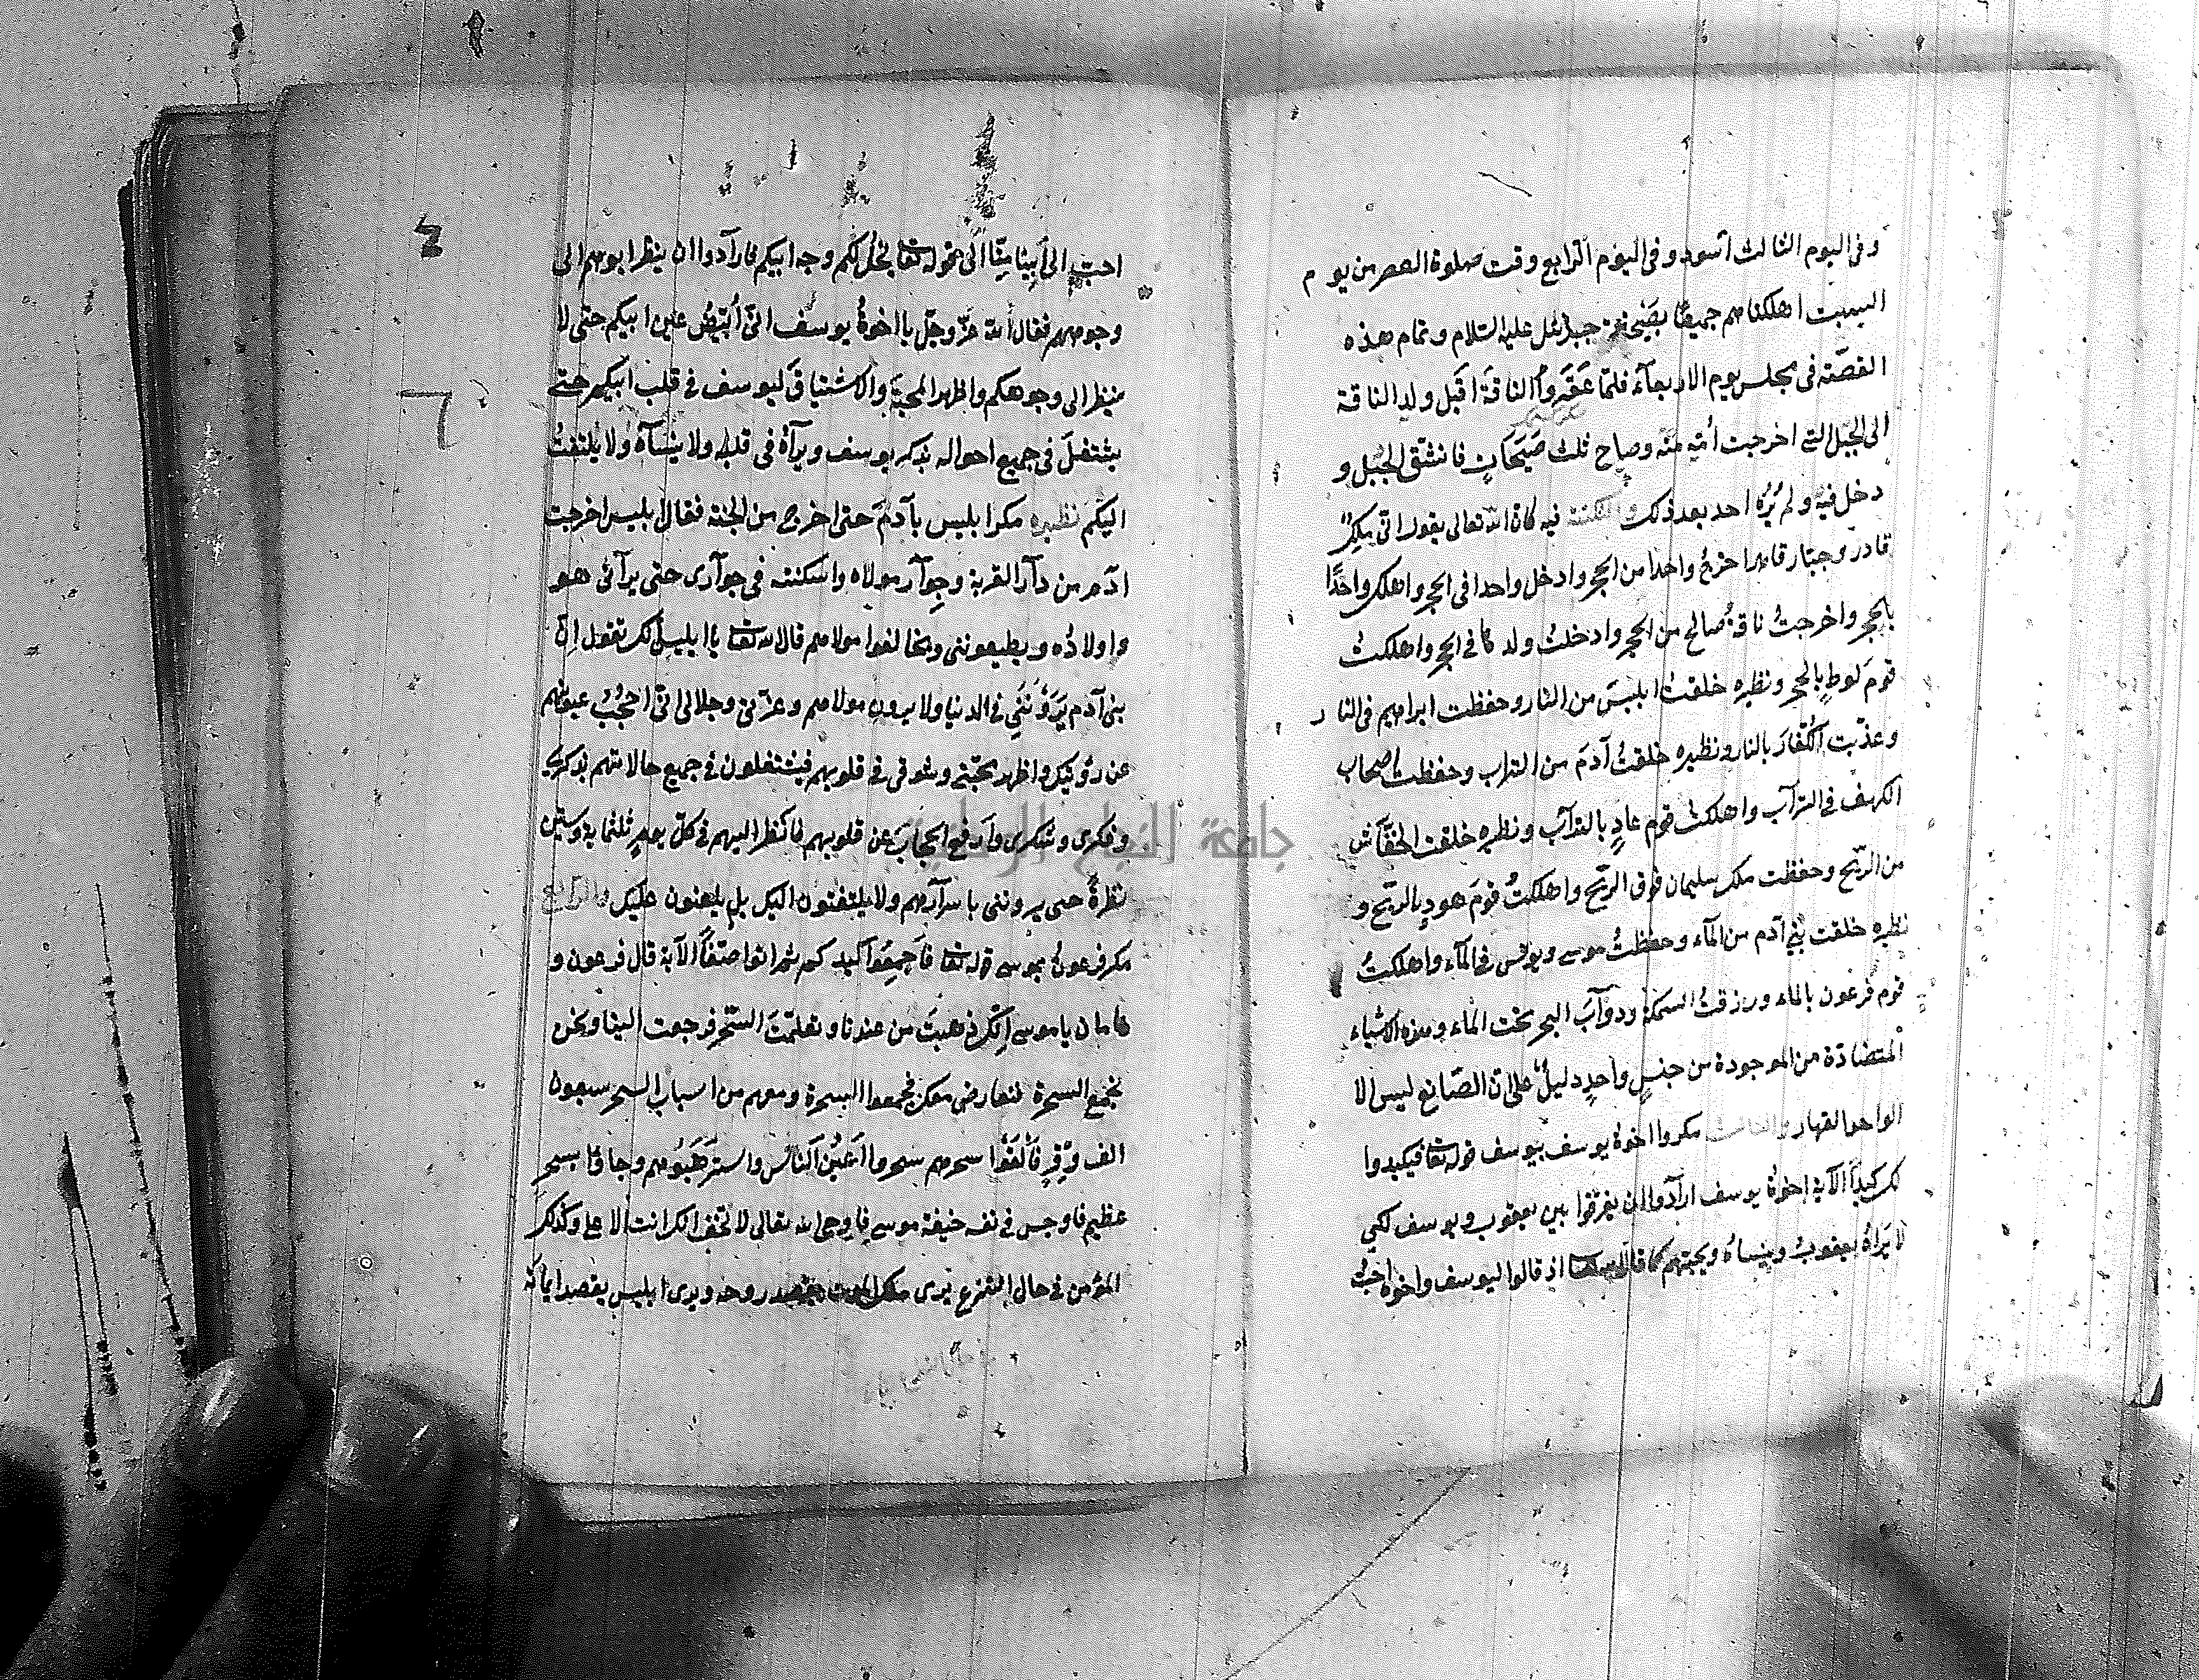 وفى اليوم الثالث اسود وفى اليوم الرابع وقت صلوة العصر من يوم
السبت اهلكناهم جميعًا بصيحة جبرائل عليه السلام وتمام هذه
القصّة فى مجلس يوم الاربعآء فلمّا عَقَروُا الناقةَ اقبَل ولد الناقة
الى الجبل التى اخرجت أمّه منه وصاح ثلث صَيحَاتٍ فانشق الجبل و
دخل فيه ولم يُرَه احد بعد ذلك والنكتة فيه كان الله تعالى يقول انّى ملِكٌ
قادر وجبّار قاهر اخرجُ واحدا من الحجر وادخل واحدا فى الحجر واهلك واحدًا
بالحجر واخرجتُ ناقةَ صالح من الحجر وادخلتُ ولدها فى الحجر واهلكتُ
قومَ لوطٍ بالحجر ونظيره خلقتُ ابليسَ من النار وحفظت ابراهيم فى النار
وعذّبت الكُفّارَ بالنار ونظيره خلقتُ آدمَ من التراب وحفظت اصحاب
الكهف فى الترآب واهلكتُ قوم عادٍ بالترآب ونظيره خلقت الخفّآش
من الرّيح وحفظت ملك سليمان فوق الرّيح واهلكتُ قومَ هودٍ بالريح و
نظيره خلقت بنى آدم من المآء وحفظتُ موسى ويونس فى المآء واهلكتُ
قوم فرعون بالماء ورزقتُ السمكة ودوآبَ البحر تحت الماء وهذه الاشياء
المتضادّة من الموجودة من جنسٍ واحدٍ دليلٌ على انّ الصّانع ليس الا
الواحد القهار والثالث مكروا اخوة يوسف بيوسف قوله تعا فيكيدوا
لك كيداً الآية اخوةُ يوسف ارآدوا ان يفرقوا بين يعقوب ويوسف لكى
لا يَراهُ يعقوبُ وينساهُ ويحبّهم كما قال الله تعا اذ قالوا ليوسف واخوه احبُّ
احبّ الى أبينا مِنّا الى قوله تعا يخلُ لكم وجه ابيكم فارآدوا ان ينظر ابوهم الى
وجوههم فقال الله عزّ وجلّ يا اخوةُ يوسف انّى أُبَيّضُ عين ابيكم حتى لا
ينظر الى وجوهكم واظهر المحبّةَ والاشتياقَ ليوسف فى قلب ابيكم حتى
يشتغلَ فى جميع احواله بذكر يوسف ويرآهُ فى قلبه ولا ينسآهُ ولا يلتفتُ
اليكم نظيره مكر ابليس بآدمَ حتى اخرج من الجنة فقال ابليس اخرجت
ادم من دآر القربة وجِوآر مولاه واسكنته فى جوآرى حتى يرآنى هو
واولادُه ويطيعوننى ويخالفوا مولاهم قال الله تعا يا ابليسُ انّك تقول انّ
بنى آدم يَرَوْنَنى فى الدنيا ولا يرون مولاهم وعزّتى وجلالى انّى احجُبُ عيونهم
عن رؤيتك واظهر محبّتى وشوقى فى قلوبهم فيشتغلون فى جميع حالاتهم بذكرى
وفكرى وشكرى وارفع الحجابَ عن قلوبهم فانظر اليهم فى كلّ يومٍ ثلثمائة وستين
نظرةً حتى يروننى باسرآرهم ولا يلتفتون اليك بل يلعنون عليك والرابع
مكر فرعونُ بموسى قوله تعا فَأجمِعُوا كيدكم ثم ائتوا صفّاً الآية قال فرعون و
هامان يا موسى انّك ذهبتَ من عندنا وتعلّمتَ السّحر فرجعت الينا ونحن
نجمع السحرة لنعارض معك فجمعوا السحرة ومعهم من اسباب السحر سبعون
الف وقْرٍ فَألْقَوْا سحرهم سحروا أعيُنَ النّاس واسترهَبُوهم وجاؤا بسحر
عظيم فاوجس فى نفسه خيفة موسى فاوحى الله تعالى لا تخف انّك انت الاعلى وكذلك
المؤمن فى حال النزع يرى ملك الموت يقصد روحه ويرى ابليس يقصد ايمانه
جامعة النجاح الوطنية